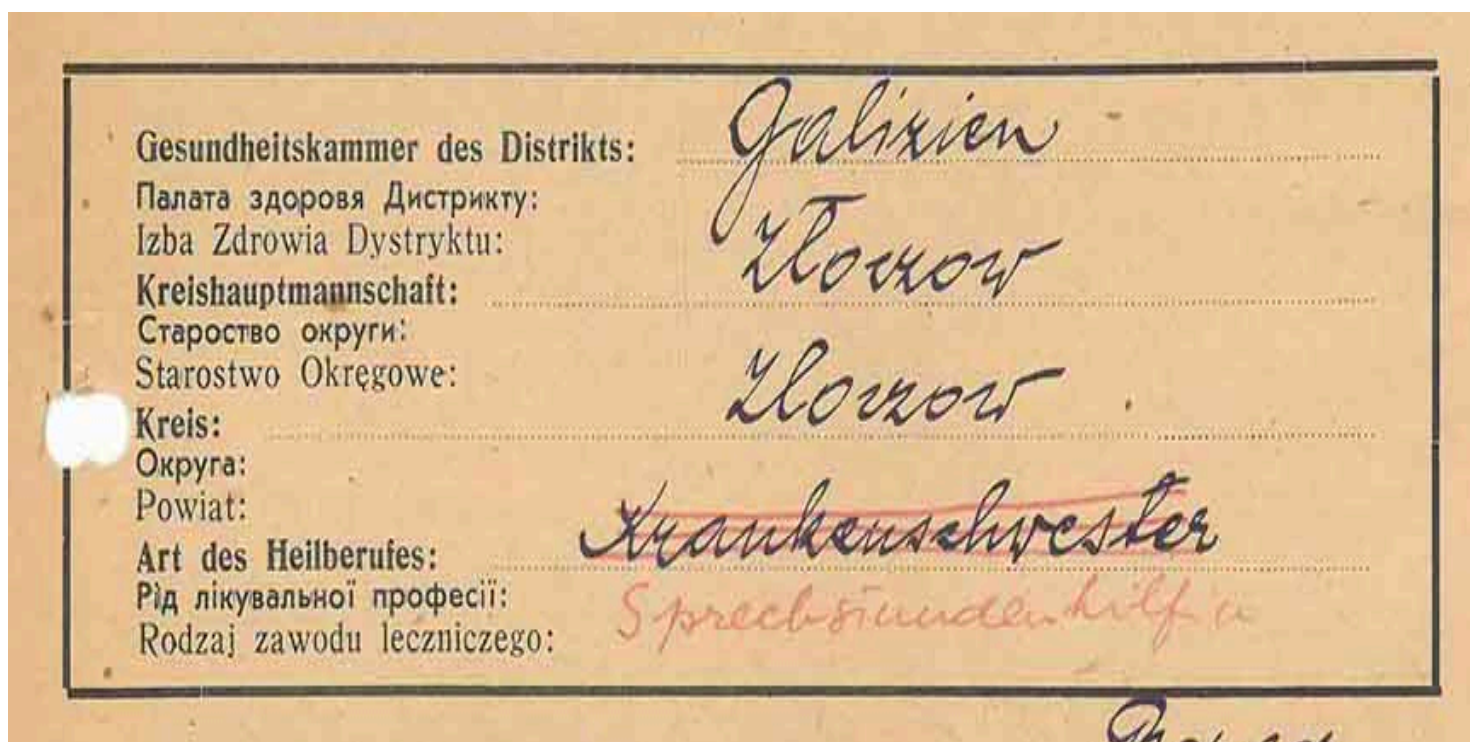 Gesundheitskammer des Distrikts: Galizien
Палата здоровя Дистрикту:
Izba Zdrowia Dystryktu:
Kreishauptmannschaft: Złoczow
Староство округи:
Starostwo Okręgowe:
Kreis: Złoczow
Округа:
Powiat:
Art des Heilberufes: Krankenschwester
Рід лікувальної професії: Sprechstundenhilfin
Rodzaj zawodu leczniczego: